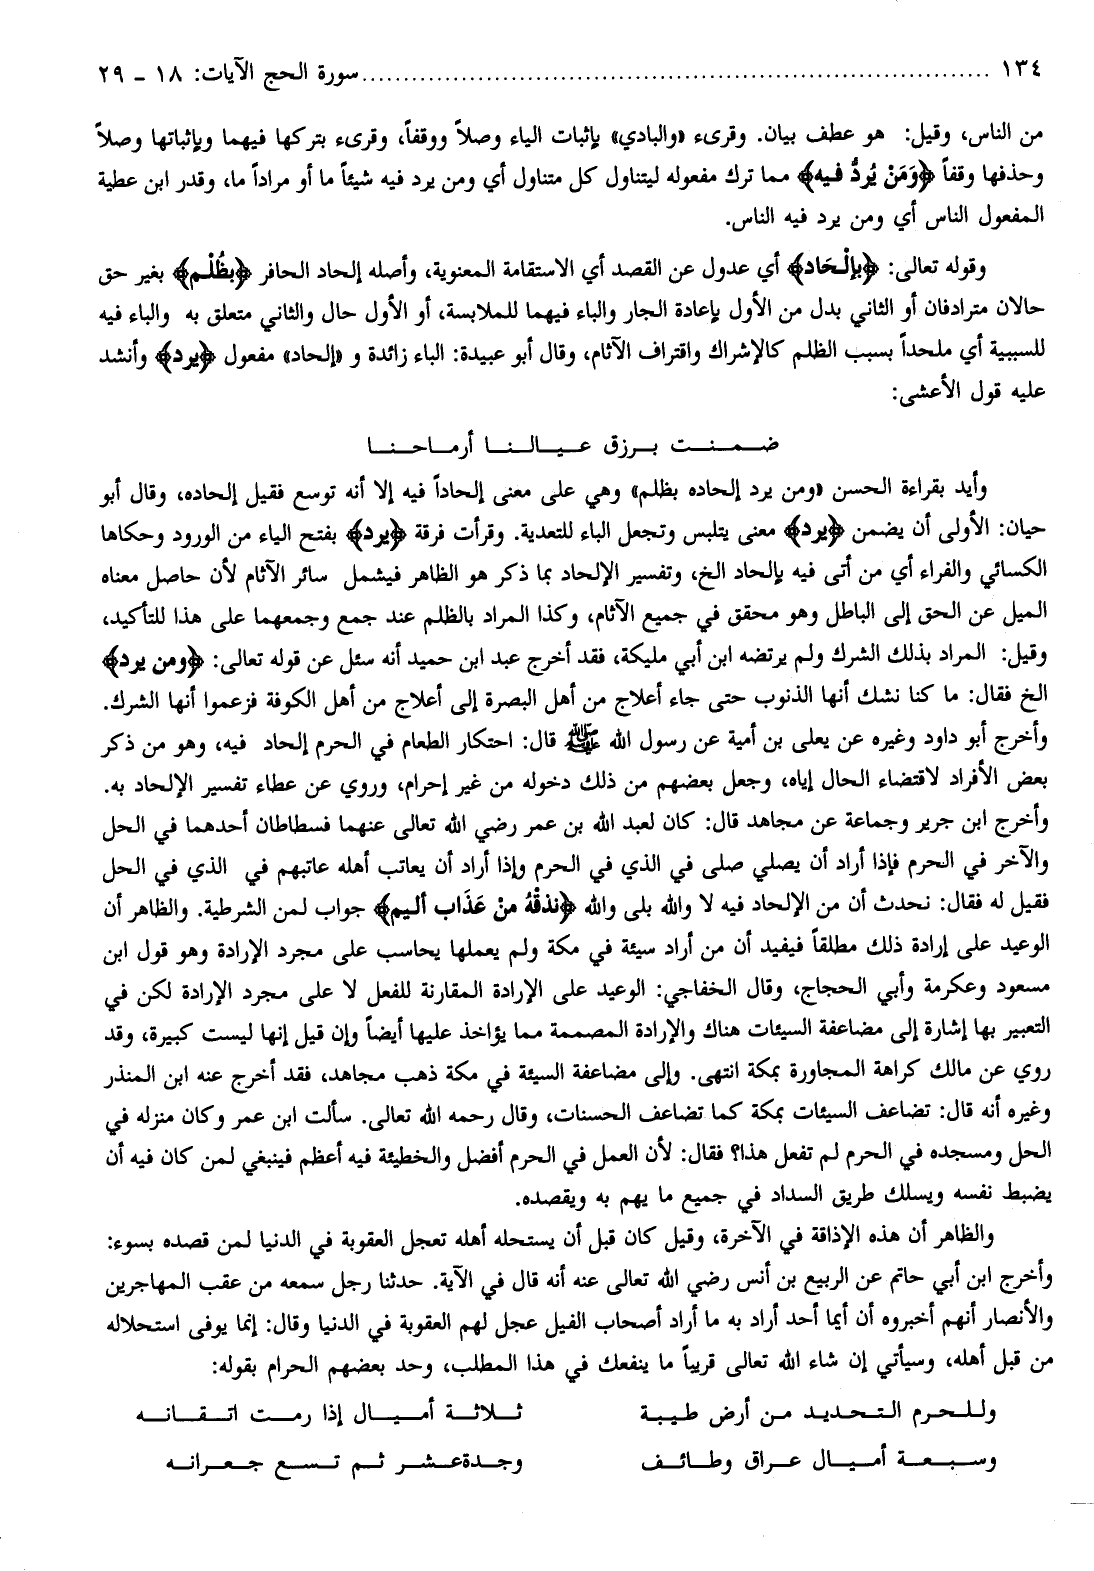 ١٣٤ ........................................................................ سورة الحج الآيات: ١٨ ـ ٢٩
من الناس، وقيل: هو عطف بيان. وقرىء «والبادي» بإثبات الياء وصلاً ووقفاً، وقرىء بتركها فيهما وبإثباتها وصلاً
وحذفها وقفاً ﴿وَمَنْ يُرِدُ فيه﴾ مما ترك مفعوله ليتناول كل متناول أي ومن يرد فيه شيئاً ما أو مراداً ما، وقدر ابن عطية
المفعول الناس أي ومن يرد فيه الناس.
وقوله تعالى: ﴿بإلْحَاد﴾ أي عدول عن القصد أي الاستقامة المعنوية، وأصله إلحاد الحافر ﴿بظُلْم﴾ بغير حق
حالان مترادفان أو الثاني بدل من الأول بإعادة الجار والباء فيهما للملابسة، أو الأول حال والثاني متعلق به والباء فيه
للسببية أي ملحداً بسبب الظلم كالإشراك واقتراف الآثام، وقال أبو عبيدة: الباء زائدة و «إلحاد» مفعول ﴿يرد﴾ وأنشد
عليه قول الأعشى:
ضمنت برزق عيالنا أرماحنا
وأيد بقراءة الحسن «ومن يرد إلحاده بظلم» وهي على معنى إلحاداً فيه إلا أنه توسع فقيل إلحاده، وقال أبو
حيان: الأولى أن يضمن ﴿يرد﴾ معنى يتلبس وتجعل الباء للتعدية. وقرأت فرقة ﴿يرد﴾ بفتح الياء من الورود وحكاها
الكسائي والفراء أي من أتى فيه بإلحاد الخ، وتفسير الإلحاد بما ذكر هو الظاهر فيشمل سائر الآثام لأن حاصل معناه
الميل عن الحق إلى الباطل وهو محقق في جميع الآثام، وكذا المراد بالظلم عند جمع وجمعهما على هذا للتأكيد،
وقيل: المراد بذلك الشرك ولم يرتضه ابن أبي مليكة، فقد أخرج عبد ابن حميد أنه سئل عن قوله تعالى: ﴿ومن يرد﴾
الخ فقال: ما كنا نشك أنها الذنوب حتى جاء أعلاج من أهل البصرة إلى أعلاج من أهل الكوفة فزعموا أنها الشرك.
وأخرج أبو داود وغيره عن يعلى بن أمية عن رسول الله ﷺ قال: احتكار الطعام في الحرم إلحاد فيه، وهو من ذكر
بعض الأفراد لاقتضاء الحال إياه، وجعل بعضهم من ذلك دخوله من غير إحرام، وروي عن عطاء تفسير الإلحاد به.
وأخرج ابن جرير وجماعة عن مجاهد قال: كان لعبد الله بن عمر رضي الله تعالى عنهما فسطاطان أحدهما في الحل
والآخر في الحرم فإذا أراد أن يصلي صلى في الذي في الحرم وإذا أراد أن يعاتب أهله عاتبهم في الذي في الحل
فقيل له فقال: نحدث أن من الإلحاد فيه لا والله بلى والله ﴿نذقْهُ منْ عَذَاب أليم﴾ جواب لمن الشرطية. والظاهر أن
الوعيد على إرادة ذلك مطلقاً فيفيد أن من أراد سيئة في مكة ولم يعملها يحاسب على مجرد الإرادة وهو قول ابن
مسعود وعكرمة وأبي الحجاج، وقال الخفاجي: الوعيد على الإرادة المقارنة للفعل لا على مجرد الإرادة لكن في
التعبير بها إشارة إلى مضاعفة السيئات هناك والإرادة المصممة مما يؤاخذ عليها أيضاً وإن قيل إنها ليست كبيرة، وقد
روي عن مالك كراهة المجاورة بمكة انتهى. وإلى مضاعفة السيئة في مكة ذهب مجاهد، فقد أخرج عنه ابن المنذر
وغيره أنه قال: تضاعف السيئات بمكة كما تضاعف الحسنات، وقال رحمه الله تعالى. سألت ابن عمر وكان منزله في
الحل ومسجده في الحرم لم تفعل هذا؟ فقال: لأن العمل في الحرم أفضل والخطيئة فيه أعظم فينبغي لمن كان فيه أن
يضبط نفسه ويسلك طريق السداد في جميع ما يهم به ويقصده.
والظاهر أن هذه الإذاقة في الآخرة، وقيل كان قبل أن يستحله أهله تعجل العقوبة في الدنيا لمن قصده بسوء:
وأخرج ابن أبي حاتم عن الربيع بن أنس رضي الله تعالى عنه أنه قال في الآية. حدثنا رجل سمعه من عقب المهاجرين
والأنصار أنهم أخبروه أن أيما أحد أراد به ما أراد أصحاب الفيل عجل لهم العقوبة في الدنيا وقال: إنما يوفى استحلاله
من قبل أهله، وسيأتي إن شاء الله تعالى قريباً ما ينفعك في هذا المطلب، وحد بعضهم الحرام بقوله:
وللحرم التحديد من أرض طيبة ثلاثة أميال إذا رمت اتقانه
وسبعة أميال عراق وطائف وجدة عشر ثم تسع جعرانه